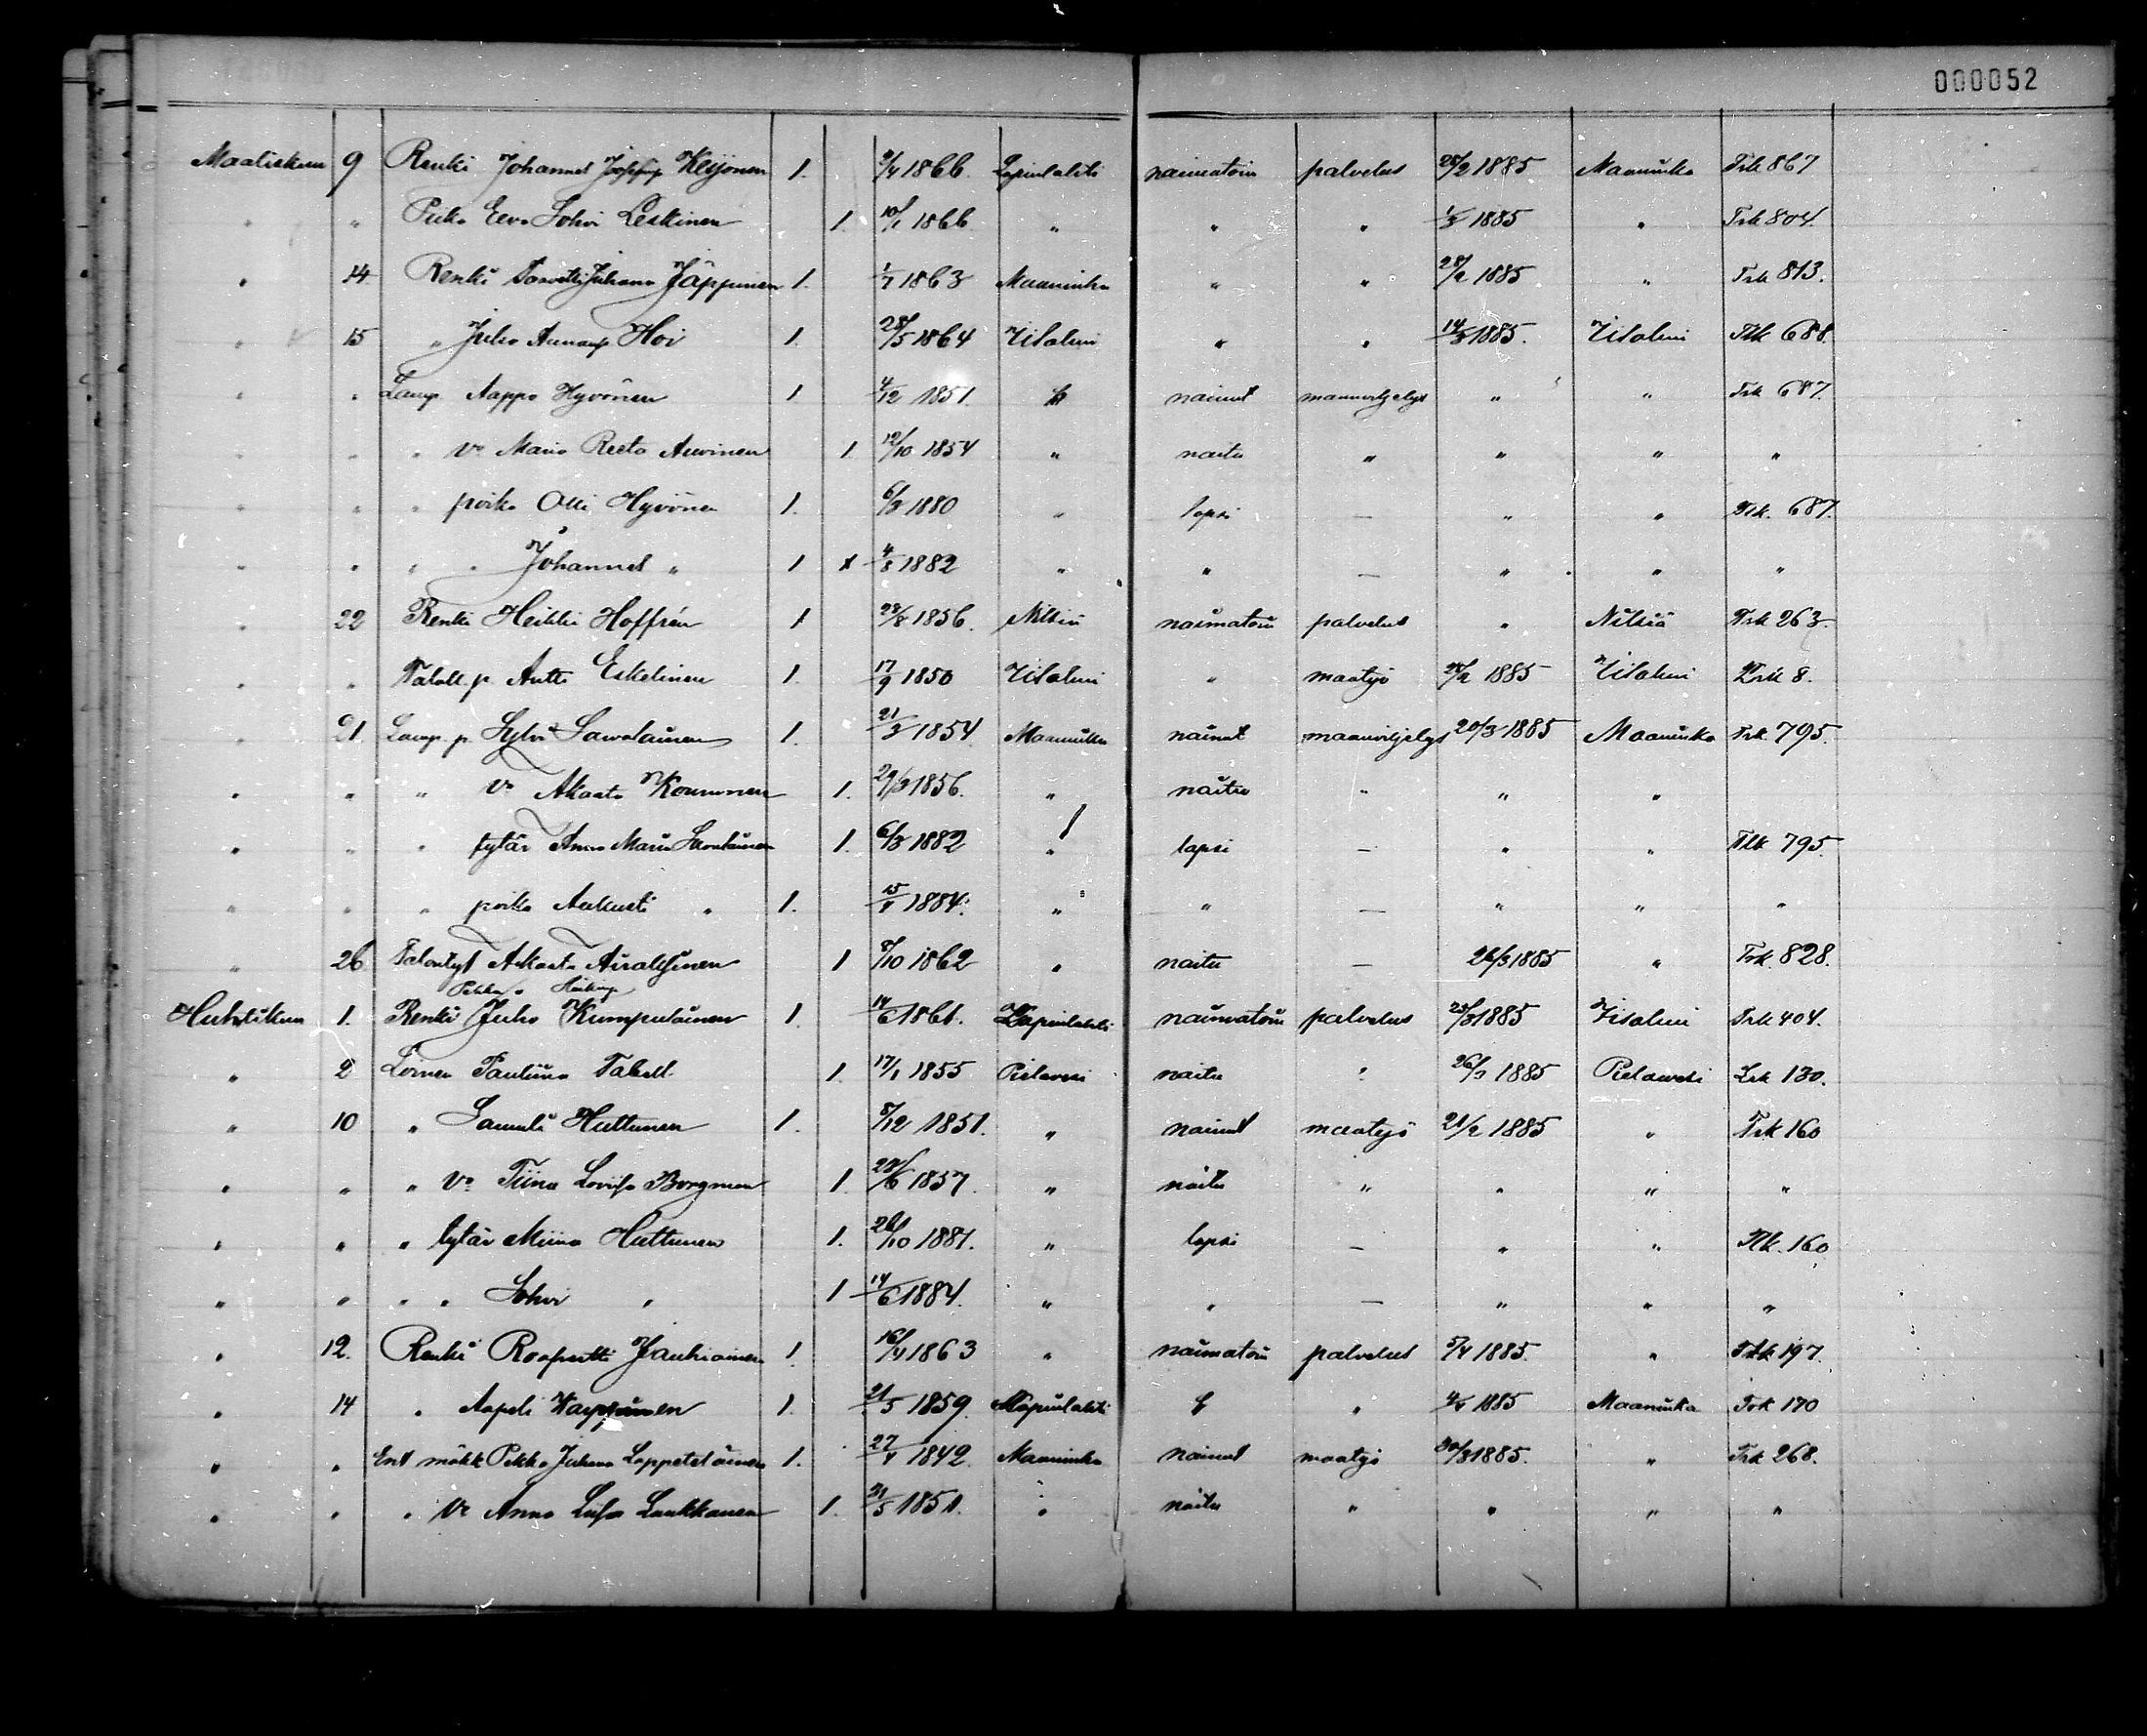 000052
Maaliskuu 9 Renki Johannes Keijonen 1. 1866. Lapinlahti naimatoin palvelus 28/2 1885 Maaninka Trk 867
" " Piika Eeva Sohvi Leskinen 1. 10/1 1866 " " " 1/3 1885 " Trk 804.
" 14 Renki Taavetti Juhana Jäppinen 1. 1/7 1863 Maaninka " " 28/2 1885 " Trk 813.
" 15 " Juho Hoi 1. 28/5 1864 Iisalmi " " 14/3 1885. Iisalmi Trk 688.
" " Lamp. Aappo Hyvönen 1 4/12 1851. " nainut maanviljelys " " Trk 687.
" " " vo Maria Reeta Auvinen 1 12/10 1854 " naitu " " " "
" " " poika Olli Hyvönen 1. 6/3 1880 " lapsi — " " Trk. 687.
" " " " Johannes " 1 x 4/8 1882 " " — " " "
" 22 Renki Heikki Hoffrén 1 28/8 1856. Nilsiä naimatoin palvelus " Nilsiä Trk 263.
" " Taloll. p. Antti Eskelinen 1. 17/9 1850 Iisalmi " maatyö 28/2 1885 Iisalmi Trk 8.
" 21. Lamp. p. Sylvi Savolainen 1. 21/3 1854. Maaninka nainut maanviljelys 20/3 1885 Maaninka Trk 795.
" " " vo Akaata Kononen 1. 29/3 1856. " naitu " " "
" " " tytär Anna Maria Savolainen 1. 6/3 1882 " lapsi — " " Trk 795.
" " " poika Aukusti " 1. 15/8 1884. " " — " " "
" 26 Talontyt Akaata Airaksinen 1 8/10 1862 " naitu — 26/3 1885 " Trk. 828.
Pekka
Huhtikuu 1. Renki Juho Kumpulainen 1. 14/6 1861. Lapinlahti naimatoin palvelus 23/3 1885 Iisalmi Trk 404.
" 2 Loinen Pauliina Tabell 1. 17/1 1855 Pielavesi naitu : 26/3 1885 Pielavesi Trk 130.
" 10 " Samuli Huttunen 1. 8/12 1851. " nainut maatyö 21/2 1885 " Trk 160
" " " vo Tiina Lovisa Borgman 1. 28/6 1857. " naitu " " " "
" " " tytär Miina Huttunen 1. 26/10 1881. " lapsi — " " Trk. 160
" " " " Sohvi " 1 14/6 1884. " " — " " "
" 12. Renki Roopertti Jauhiainen 1. 16/4 1863 " naimatoin palvelus 5/4 1885. " Trk 197.
" 14 " Aapeli 1. 21/5 1859. Lapinlahti " " 4/4 1885 Maaninka Trk 170
" " Ent mökk Pekka Juhana Lappeteläinen 1. 27/4 1842. Maaninka nainut maatyö 30/3 1885. " Trk 268.
" " " vo Anna Liisa Laukkanen 1. 21/5 1851. " naitu " " " "